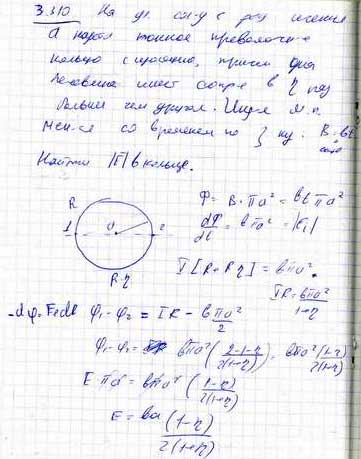 3.310 На дл. сол-д с рад сечения
a надет тонкое проволочн-е
кольцо с щ, причем одна
половина имеет сопр-е в η раз
больше чем другая. Индук М.п.
мен-ся со временем по з-ку. B=bt
Найти |E| в кольце.
R
1 0 2
R·η
Φ = B·πa² = bt πa²
dΦ/dt = bπa² = |ε_i|
I[R+Rη] = bπa².
IR = bπa²/1+η
-dφ=Edl φ₁-φ₂ = IR - bπa²/2
φ₁-φ₂= bπa²(2-1-η/2(1+η)) = bπa²(1-η)/2(1+η)
E πa = bπa²(1-η/2(1+η))
E = ba(1-η)/2(1+η)